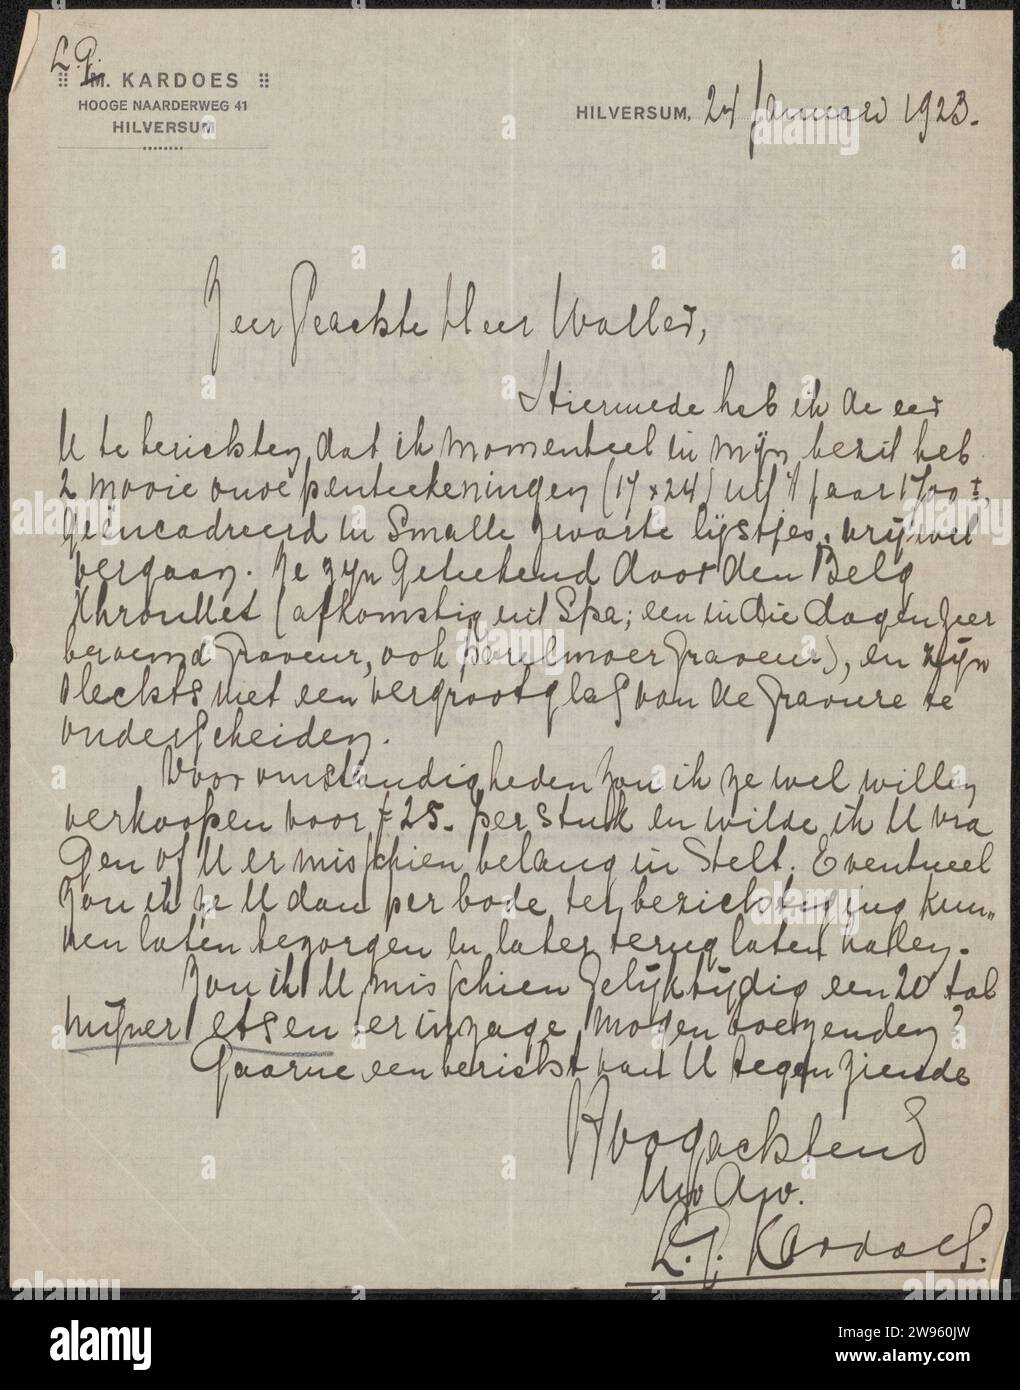 L.P.
M. KARDOES
HOOGE NAARDERWEG 41
HILVERSUM
HILVERSUM, 24 Januari 1923.
Zeer Geachte Heer Waller,
Hiermede heb ik de eer
U te berichten, dat ik momenteel in mijn bezit heb
2 mooie oude penteekeningen (17 x 24) uit 't jaar 1700 ±
geëncadreerd in smalle zwarte lijstjes, vrijwel
vergaan. Ze zijn geteekend door den Belg
(afkomstig uit Spa; een in die dagen zeer
beroemd graveur, ook parelmoer graveur), en zijn
slechts met een vergrootglas van de gravure te
onderscheiden.
Door omstandigheden zou ik ze wel willen
verkoopen voor f 25.- per stuk en wilde ik U vra
gen of U er misschien belang in stelt. Eventueel
zou ik ze U dan per bode ter bezichtiging kun„
nen laten bezorgen en later terug laten halen.
Zou ik U misschien gelijktijdig een 20 tal
mijner etsen ter inzage mogen toezenden?
Gaarne een bericht van U tegenziende
Hoogachtend
Uw Dw.
L.P. Kardoes.
alamy
Image ID: 2W960JW
www.alamy.com